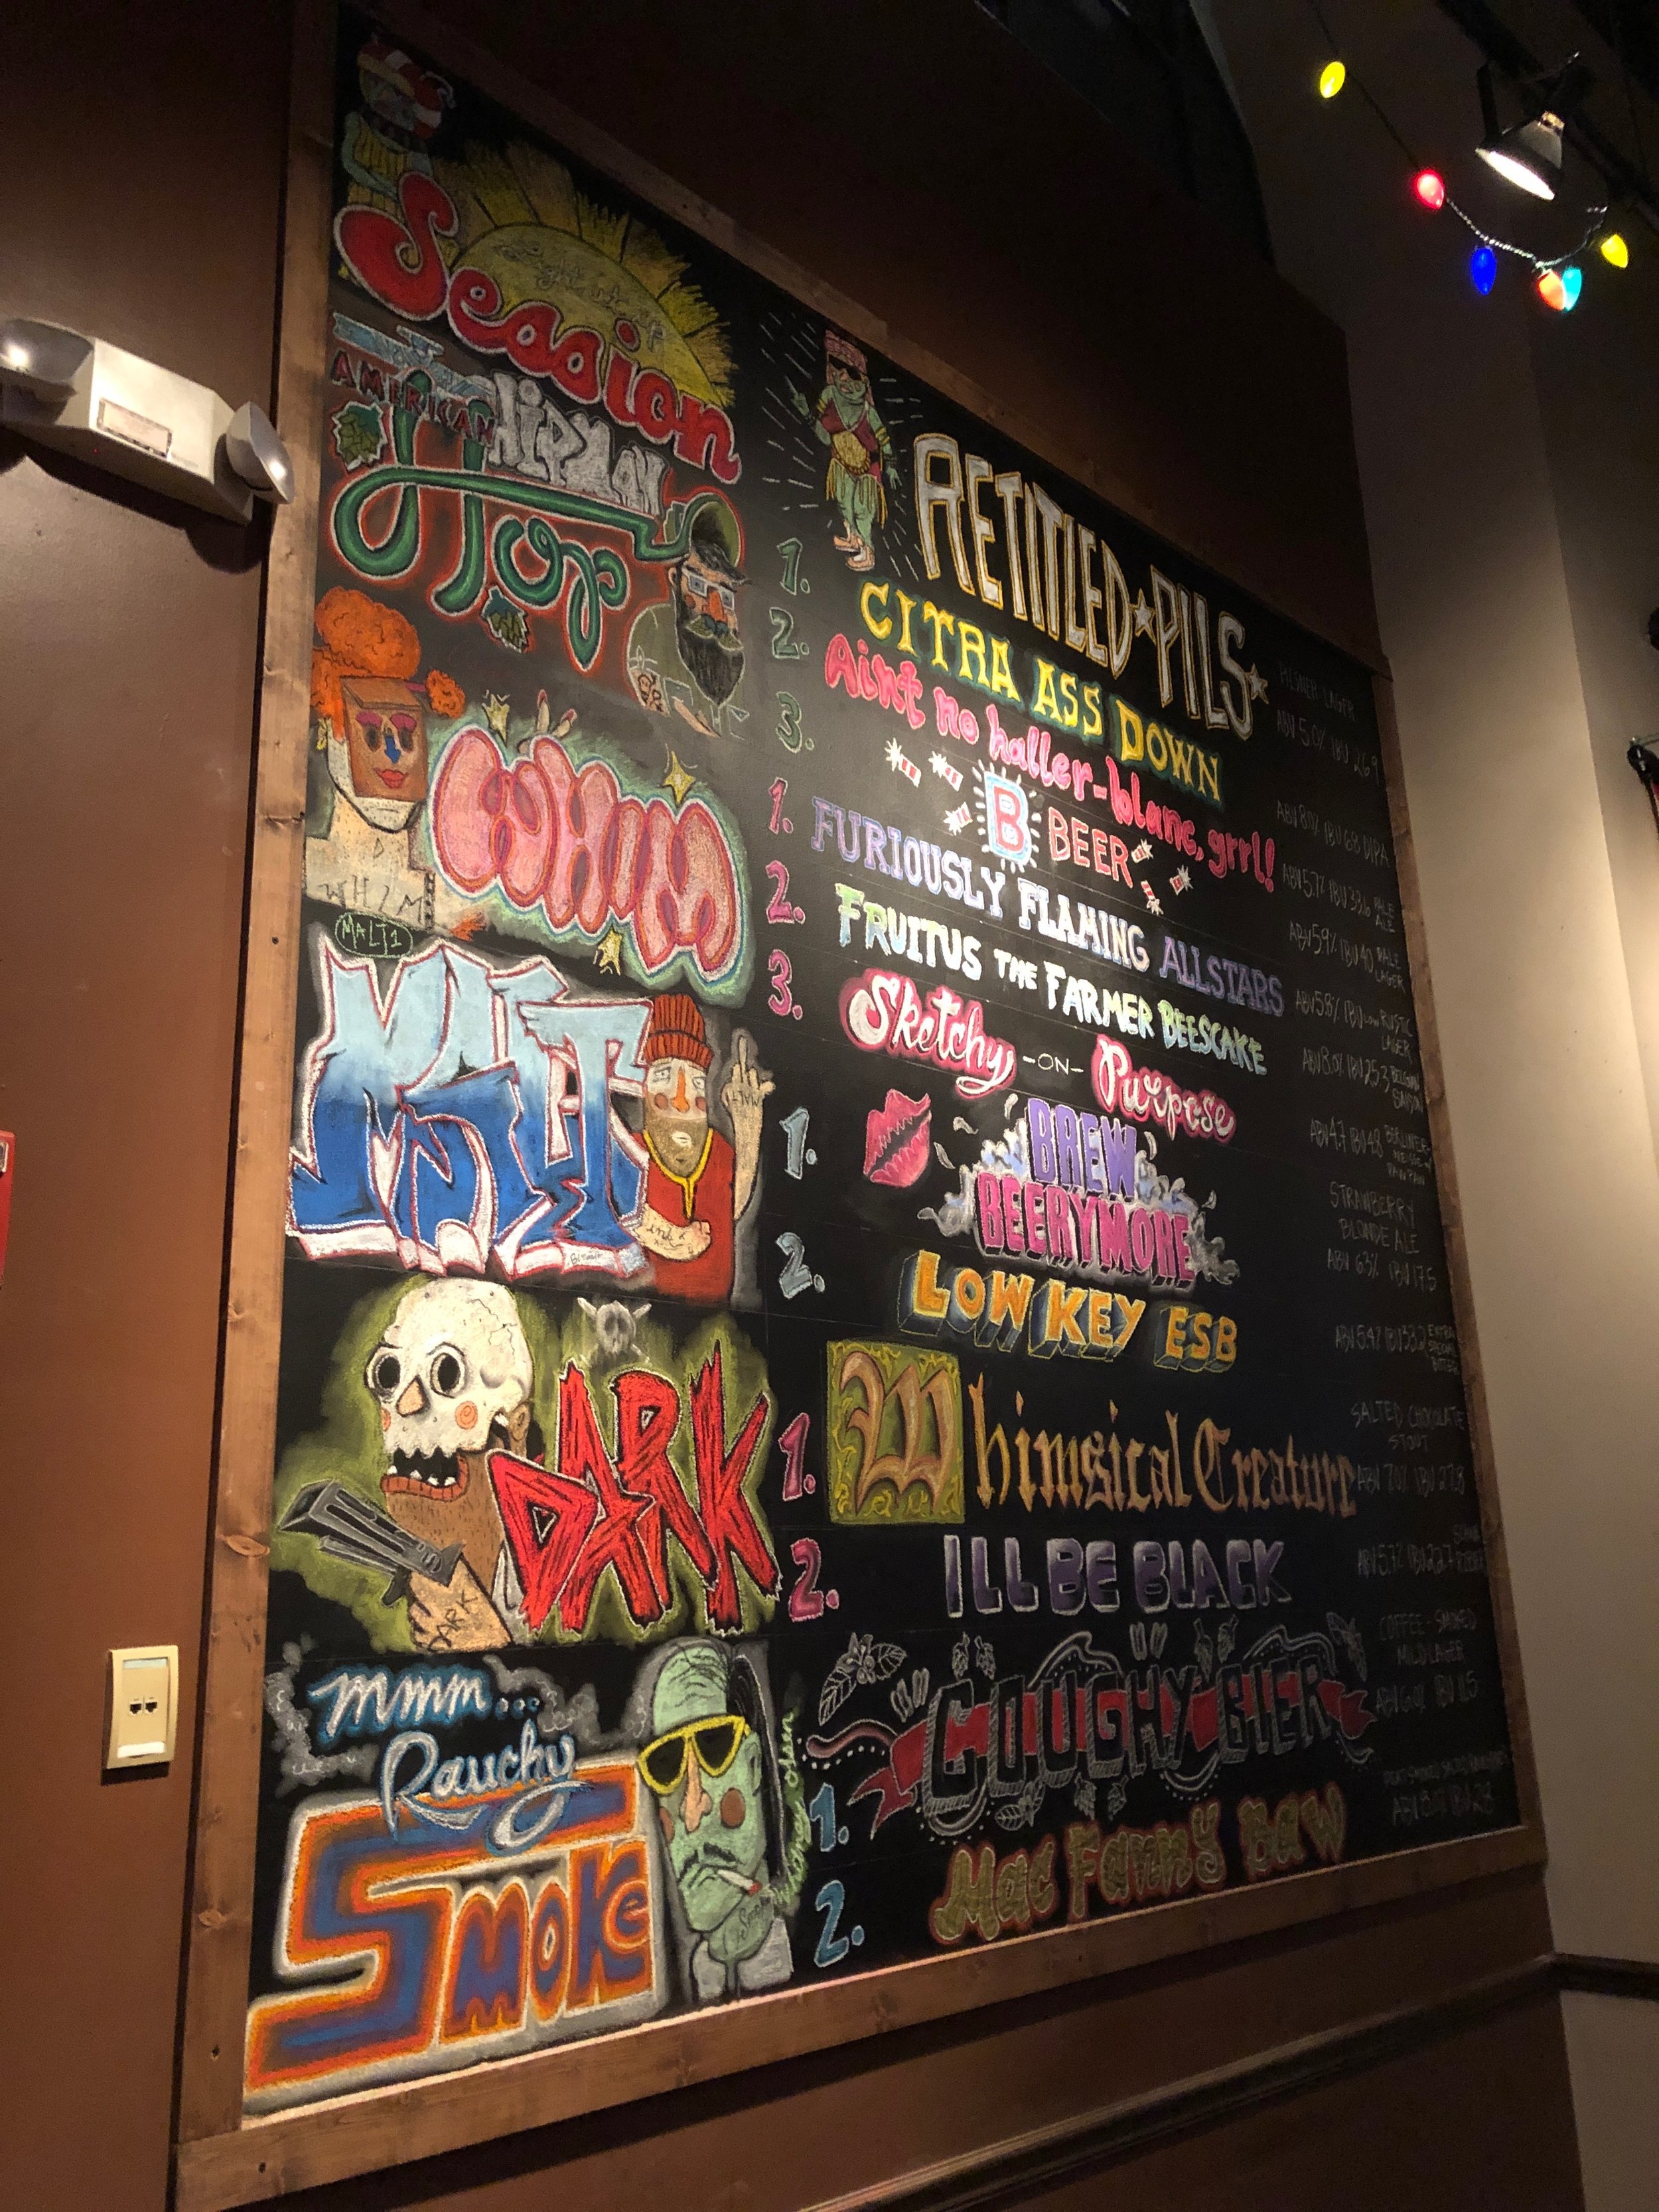 Session
AMERICAN
Hop
WHIM
WH?M
MALT 1
MALT
DARK
DARK
mmm...
Rauchy
SMOKE
RETITLED★PILS★
PILSNER LAGER
ABV 5.0% IBU 26.9
1.
CITRA ASS DOWN
ABV 8.0% IBU 68 DIPA
2.
Aint no haller-blanc, grrl!
ABV 5.7% IBU 33.6 PALE ALE
3.
B BEER
ABV 5.9% IBU 40 PALE LAGER
1.
FURIOUSLY FLAMING ALLSTARS
ABV 5.8% IBU Low RUSTIC LAGER
2.
FRUITUS THE FARMER BEESCAKE
ABV 8.0% IBU 25.3 BELGIAN SAISON
3.
Sketchy -ON- Purpose
ABV 4.7 IBU 4.8
BREW
BEERYMORE
STRAWBERRY
BLONDE ALE
ABV 6.3% IBU 17.5
1.
LOW KEY ESB
ABV 5.4% IBU 33.2 EXTRA SPECIAL BITTER
2.
Whimsical Creature
SALTED CHOCOLATE
STOUT
ABV 7.0% IBU 27.8
1.
ILL BE BLACK
ABV 5.7% IBU 22.7
2.
COUGHY BIER
COFFEE-SMOKED
MILD LAGER
ABV 6.0% IBU 11.5
1.
Mac Fanny Baw
ABV 8.0% IBU 28
2.